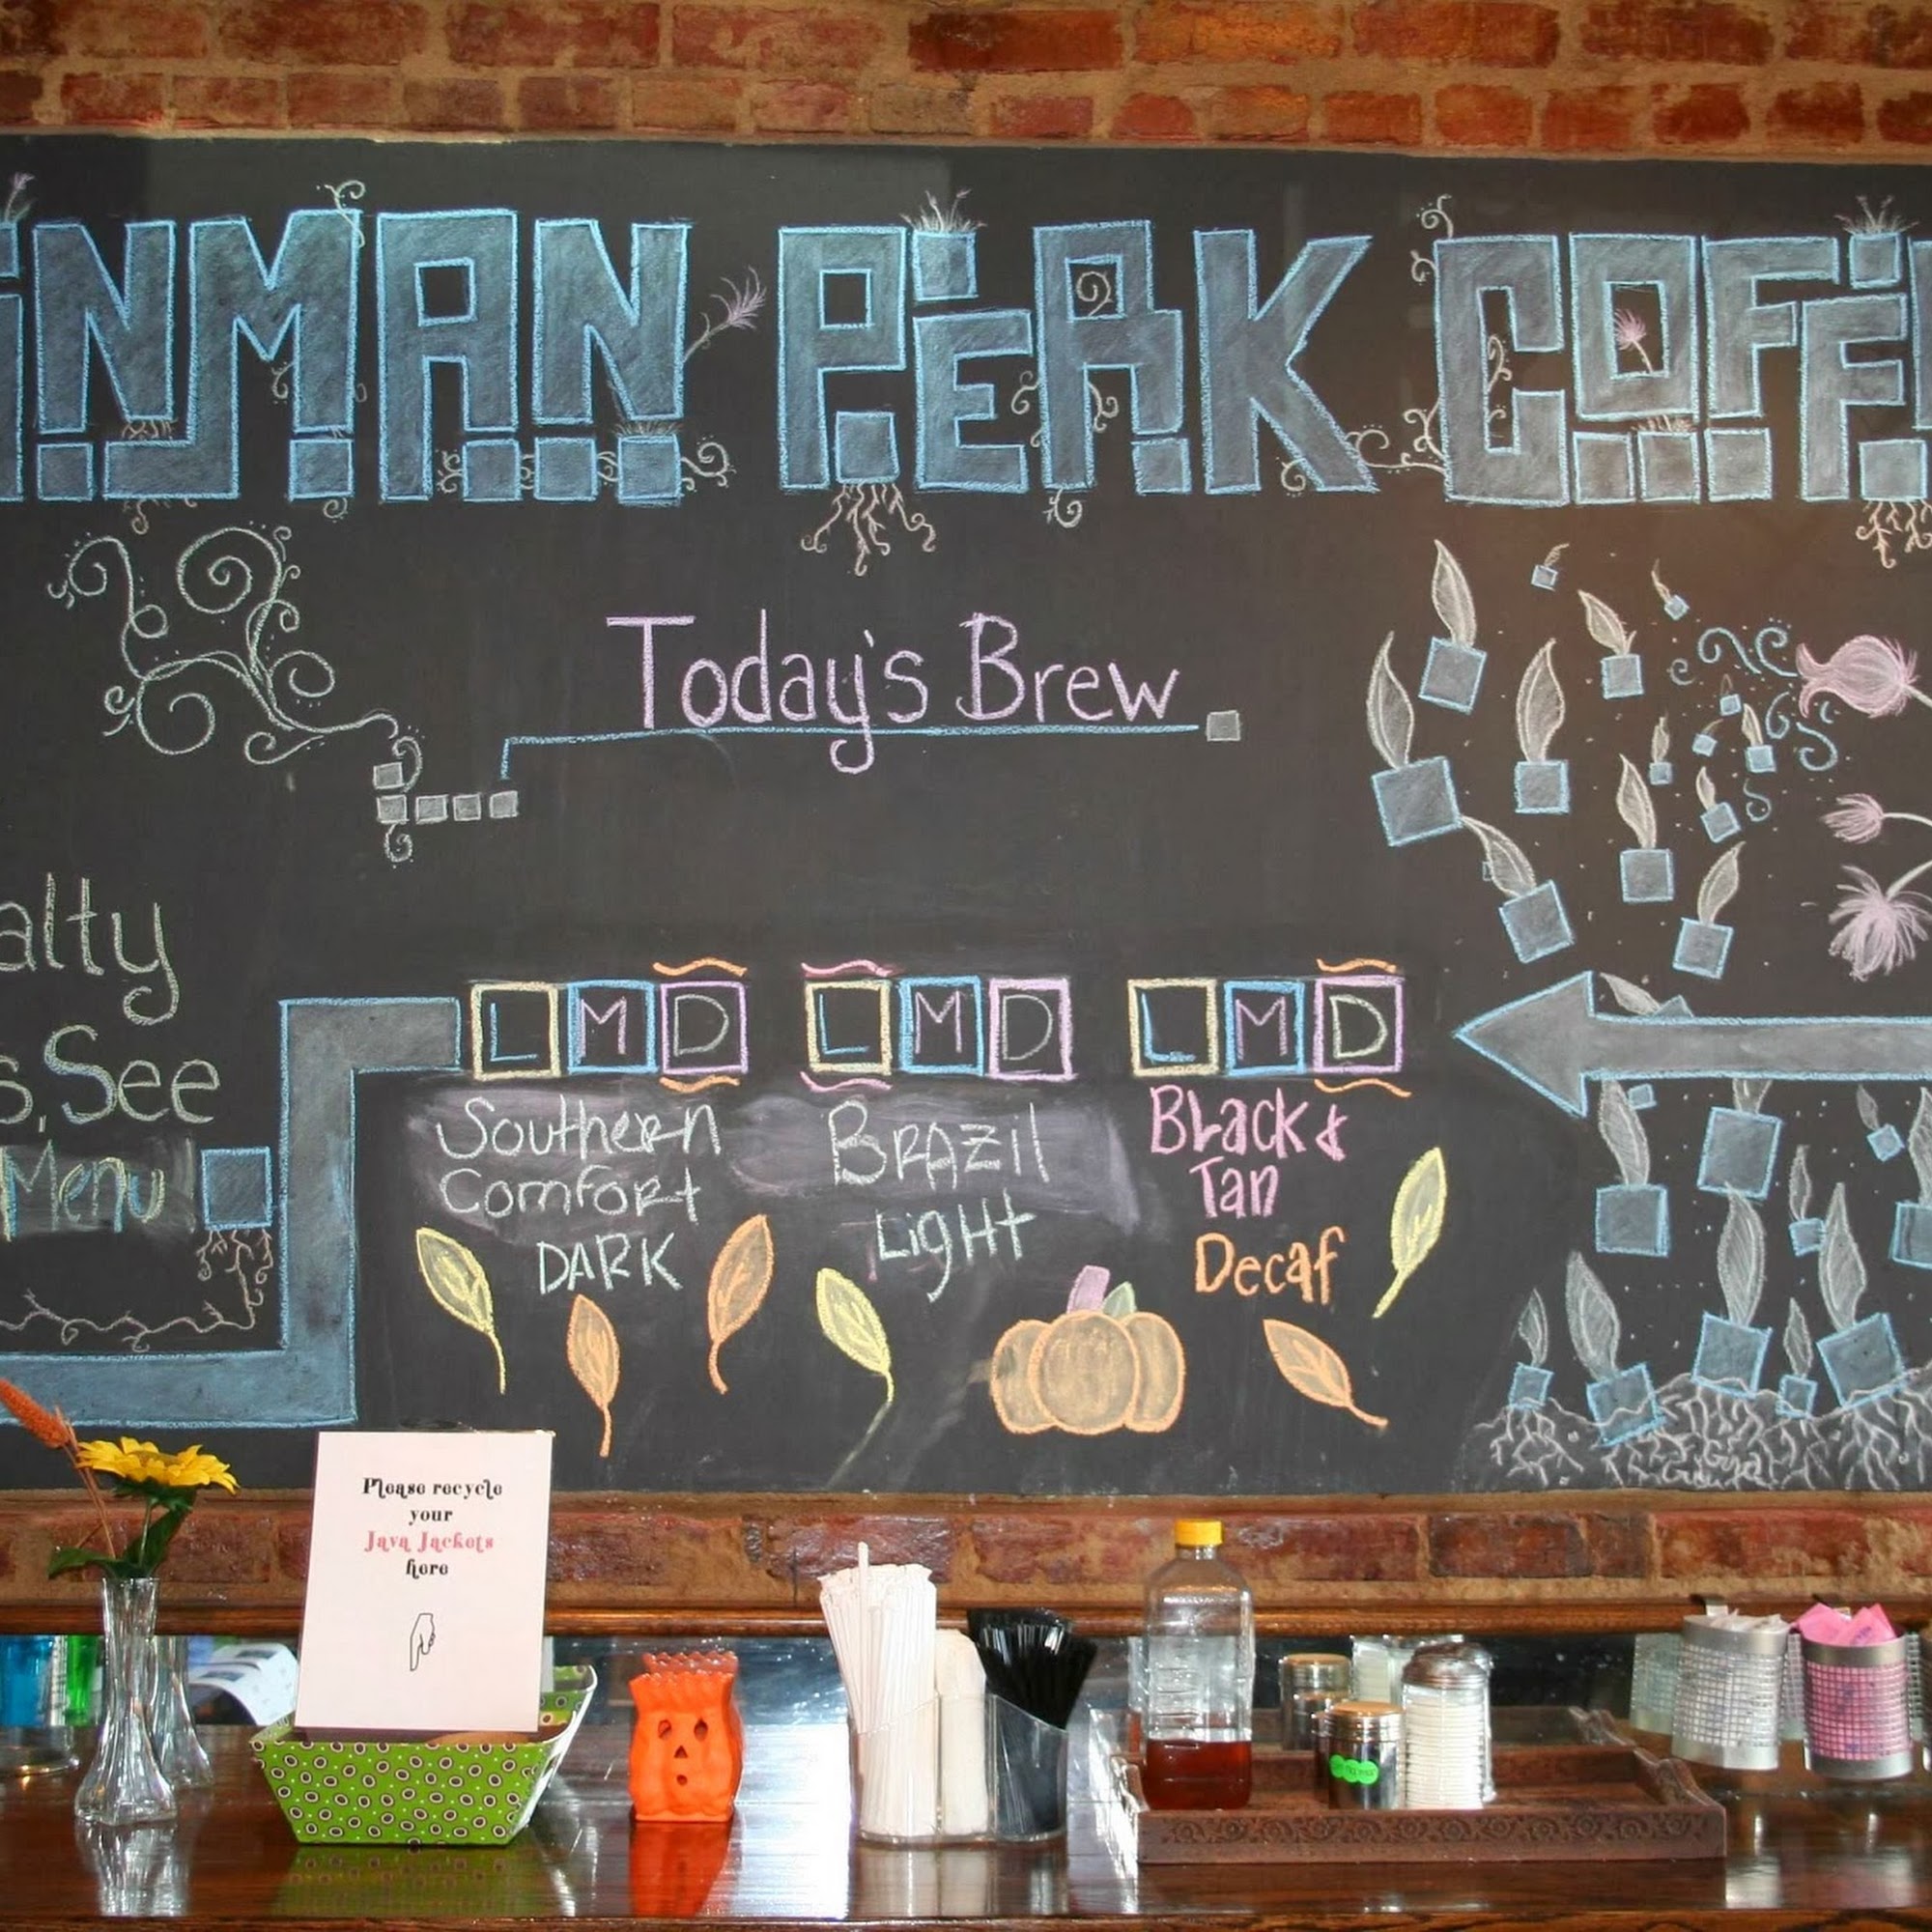 INMAN PERK COFFE
Today's Brew
alty
s, See
Menu
L M D
Southern
Comfort
DARK
L M D
BRAZil
LigHt
L M D
Black &
Tan
Decaf
Please recycle
your
Java Jackets
here